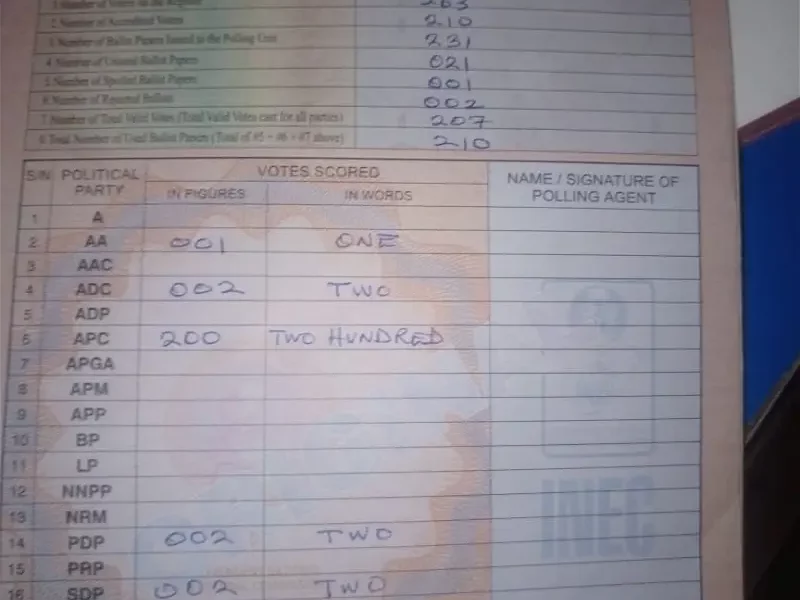 1 Number of Voters on the Register 263
2 Number of Accredited Voters 210
3 Number of Ballot Papers Issued to the Polling Unit 231
4 Number of Unused Ballot Papers 021
5 Number of Spoiled Ballot Papers 001
6 Number of Rejected Ballots 002
7 Number of Total Valid Votes (Total Valid Votes cast for all parties) 207
8 Total Number of Used Ballot Papers (Total of #5 + #6 + #7 above) 210
S/N POLITICAL PARTY VOTES SCORED NAME / SIGNATURE OF POLLING AGENT
IN FIGURES IN WORDS
1 A
2 AA 001 ONE
3 AAC
4 ADC 002 TWO
5 ADP
6 APC 200 TWO HUNDRED
7 APGA
8 APM
9 APP
10 BP
11 LP
12 NNPP
13 NRM
14 PDP 002 TWO
15 PRP
16 SDP 002 TWO
INEC